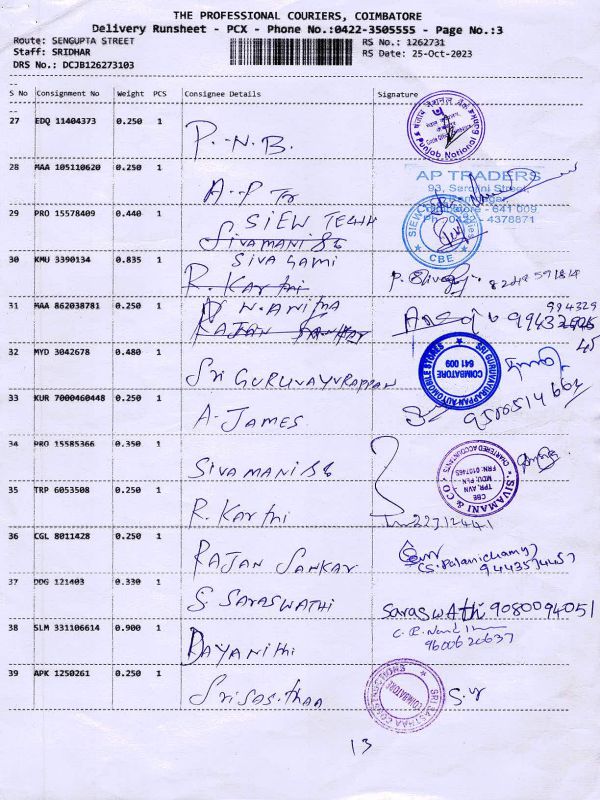 THE PROFESSIONAL COURIERS, COIMBATORE
Delivery Runsheet - PCX - Phone No.:0422-3505555 - Page No.:3
Route: SENGUPTA STREET
RS No.: 1262731
Staff: SRIDHAR
RS Date: 25-Oct-2023
DRS No.: DCJB126273103
S No Consignment No Weight PCS Consignee Details Signature
27 EDQ 11404373 0.250 1 P.N.B.
Punjab National Bank
28 MAA 105110620 0.250 1 A-P Tr
AP TRADERS
93, Sarojini Street,
Ram Nagar,
Coimbatore - 641 009
Ph : 0422 - 4378871
29 PRO 15578409 0.440 1 SIEW TECHH
Sivamani &
CBE
30 KMU 3390134 0.835 1 SIVA GAMI
R. Karthi
31 MAA 862038781 0.250 1 N. ANITHA
RAJAN SANKAR
32 MYD 3042678 0.480 1 Sri GURUVAYURAPPAN
SRI GURUVAYURAPPAN AUTOMOBILE STORES
COIMBATORE
641 009
33 KUR 7000460448 0.250 1 A. JAMES
9500514662
34 PRO 15585366 0.350 1 SIVAMANI &
SIVAMANI & CO
CHARTERED ACCOUNTANTS
35 TRP 6053508 0.250 1 R. Karthi
22312441
36 CGL 8011428 0.250 1 RAJAN SANKAR
(S. Palanichamy)
9443574457
37 DDG 121403 0.330 1 S. SARASWATHI
SaraswAthi 9080094051
38 SLM 331106614 0.900 1 DAYANITHI
9600620637
39 APK 1250261 0.250 1 Sri Sasthaa
SRI SASTHAA CONSTRUCTIONS
COIMBATORE
13